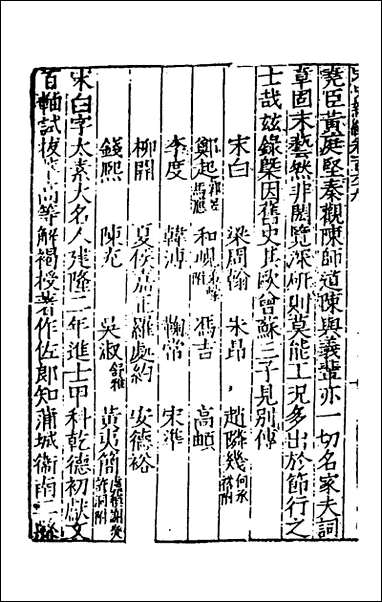 堯臣黃庭堅秦觀陳師道陳與義輩亦一切名家夫詞
章固末藝然非閎覽深研則莫能工況多出於節行之
士哉玆錄槩因舊史其歐曾蘇三子見別傳
宋白 梁周翰 朱昂 趙隣幾何承裕附
鄭起郭昱馬應 和㠓弟㟧附 馮吉 高頔
李度 韓溥 鞠常 宋準
柳開 夏侯嘉正羅處約 安德裕
錢熙 陳充 吳淑舒雅 黃夷簡盧稹謝炎許洞附
宋白字太素大名人建隆二年進士甲科乾德初獻文
百軸試拔萃高等解褐授著作佐郎知蒲城衞南二縣